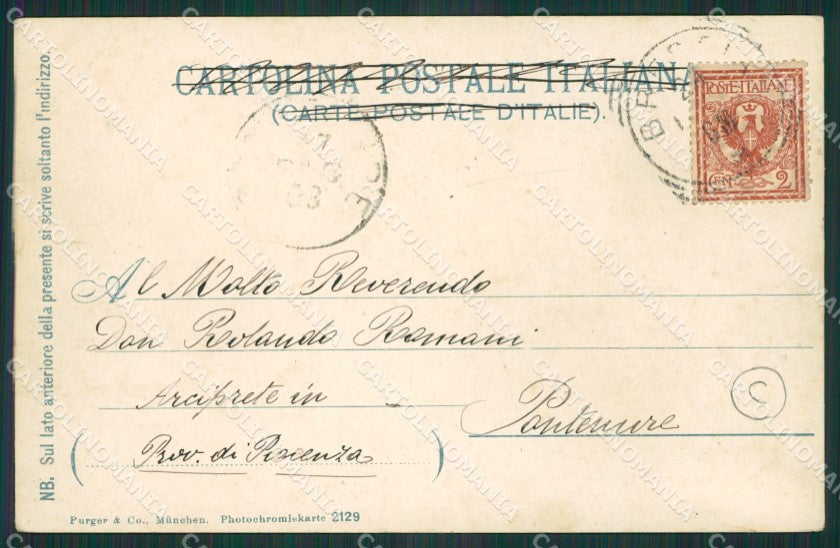 CARTOLINA POSTALE ITALIANA
(CARTE POSTALE D'ITALIE).
POSTE ITALIANE
CEN 2
Al Molto Reverendo
Don Rolando Romani
Arciprete in
Pontenure
C
(Prov. di Piacenza)
NB. Sul lato anteriore della presente si scrive soltanto l'indirizzo.
Purger & Co., München. Photochromiekarte 2129
CARTOLINOMANIA